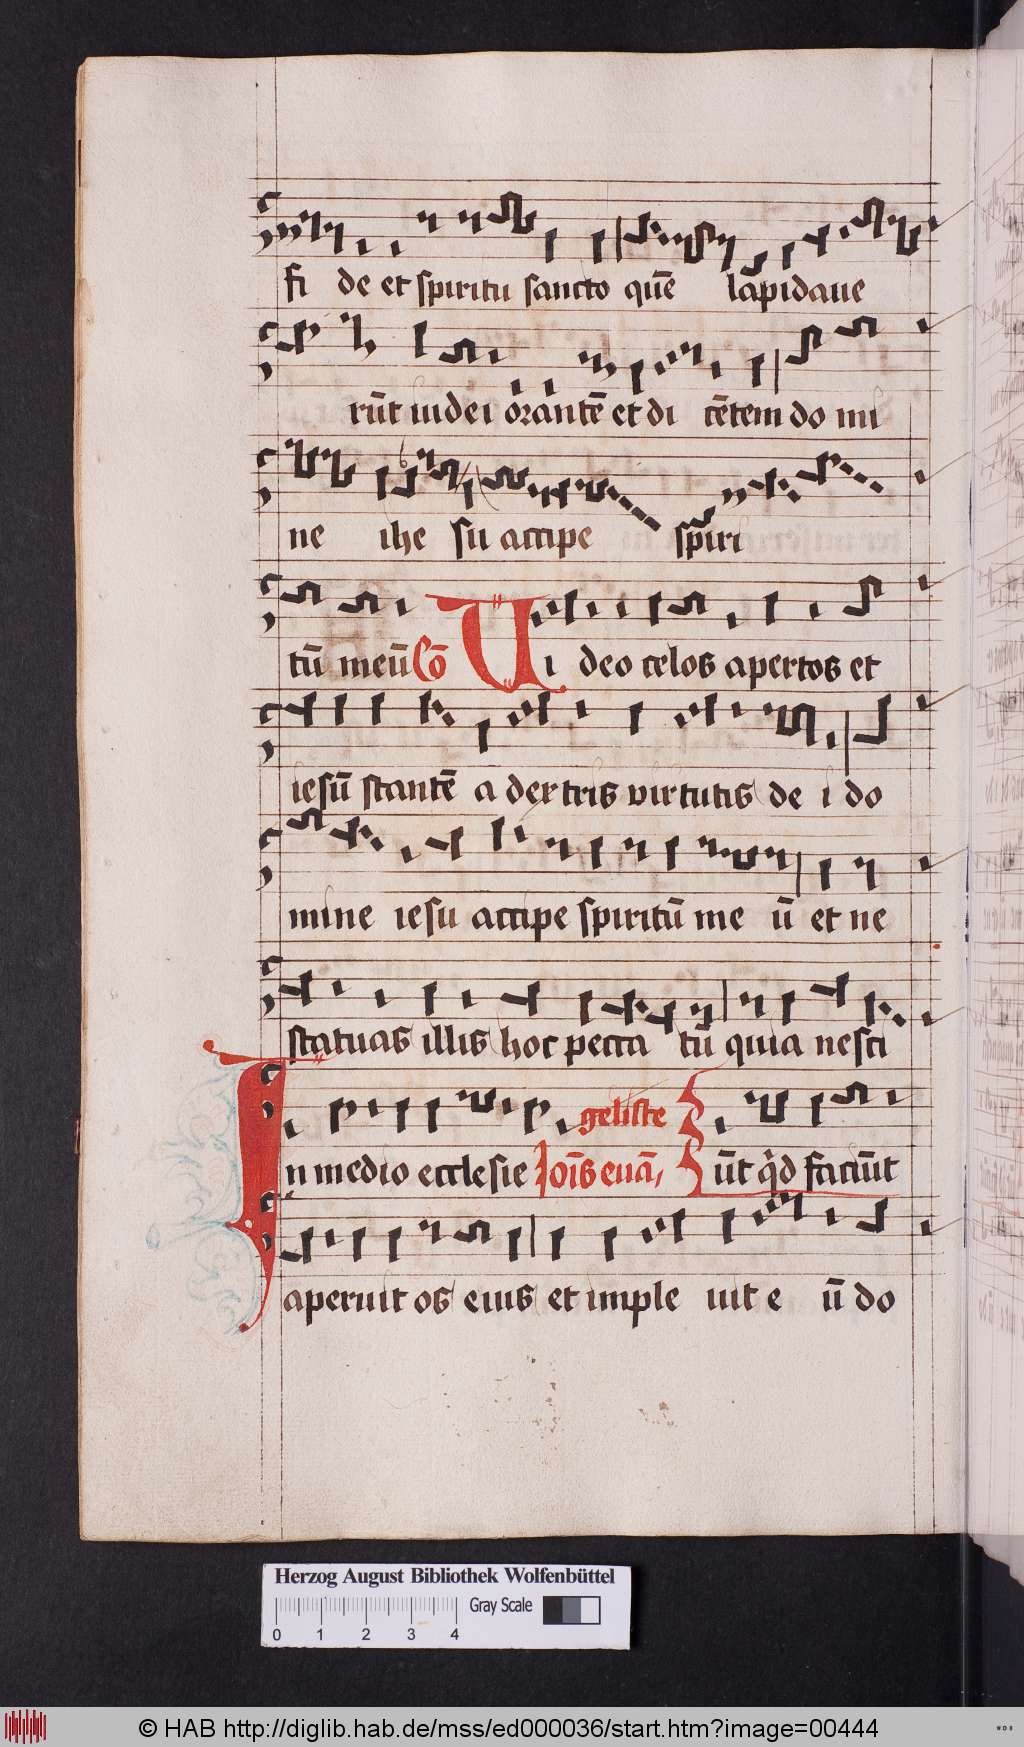 fi de et spiritu sancto quē lapidaue
rūt iudei orantē et di cētem do mi
ne ihe su accipe spiri
tū meū Cō Vi deo celos apertos et
iesū stantē a dextris virtutis de i do
mine iesu accipe spiritū me ū et ne
statuas illis hoc pecca tū quia nesci
geliste
In medio ecclesie Joīs euā, ūt qd faciūt
aperuit os eius et imple uit e ū do
Herzog August Bibliothek Wolfenbüttel
Gray Scale
0 1 2 3 4
© HAB http://diglib.hab.de/mss/ed000036/start.htm?image=00444